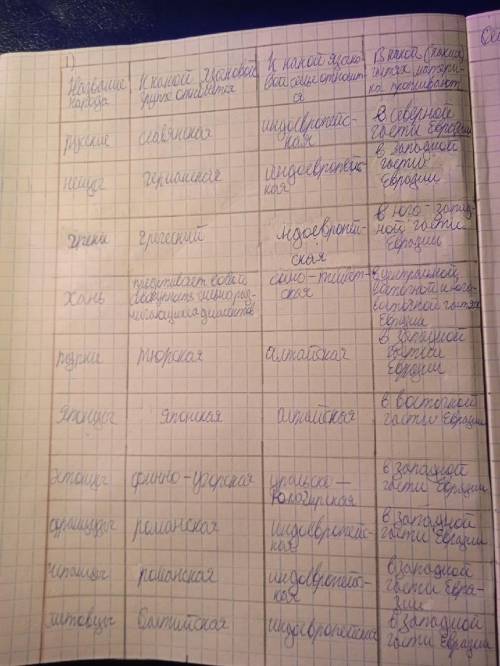 1)
Название
народа
К какой языковой
группе относится
К какой языко-
вой семье относит
ся
В какой (каких)
частях матери-
ка проживают
Русские
славянская
индоевропейс-
кая
в северной
части Евразии
немцы
германская
индоевропейс-
кая
в западной
части
Евразии
греки
греческий
ндоевропей-
ская
в юго-запад-
ной части
Евразии
Хань
представляет собой
совокупность
диалектов
сино-тибет-
ская
в центральной,
восточной и юго-
восточной частях
Евразии
турки
тюрская
алтайская
в западной
части
Евразии
Японцы
Японская
алтайская
в восточной
части Евразии
Эстонцы
финно-угорская
уральско-
юкагирская
в западной
части Евразии
французы
романская
индоевропейс-
кая
в западной
части Евразии
испанцы
романская
индоевропейс-
кая
в западной
части Евра-
зии
литовцы
балтийская
индоевропейская
в западной
части Евразии